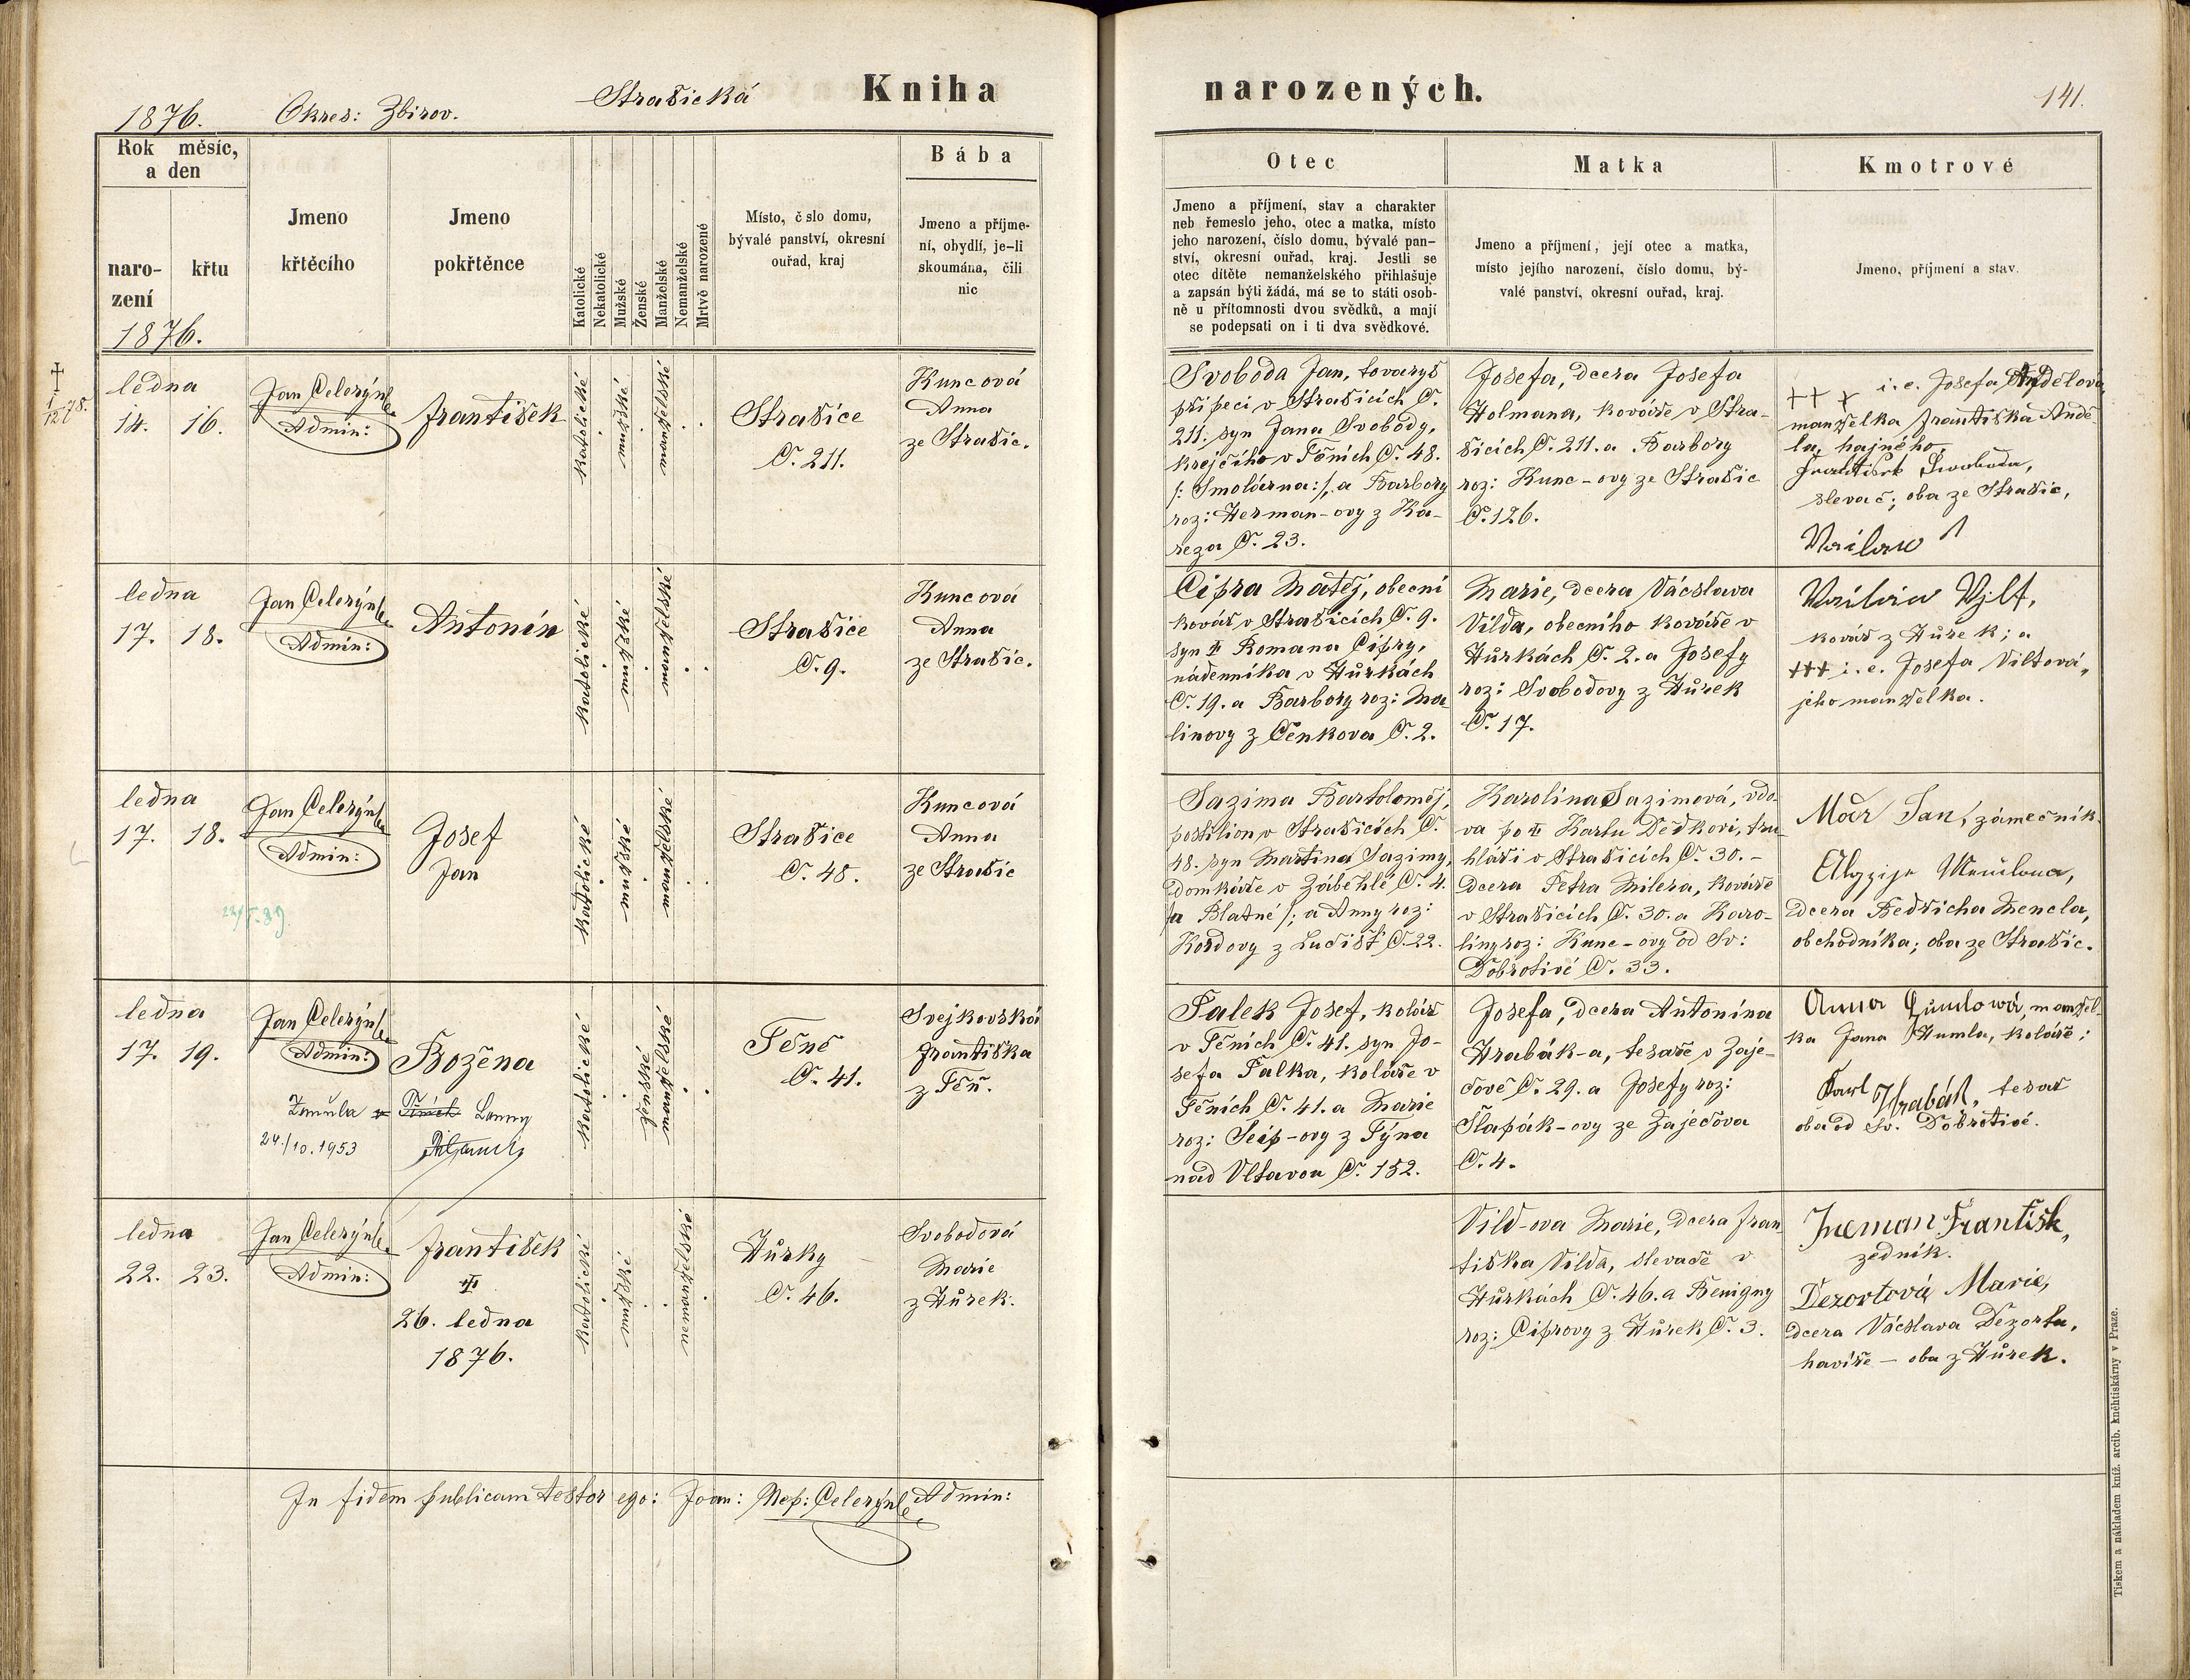 Strašická Kniha narozených.
1876. Okres: Zbirov. 141.
Rok měsíc,
a den
naro-
zení
křtu
1876.
Jmeno
křtěcího
Jmeno
pokřtěnce
Katolické
Nekatolické
Mužské
Ženské
Manželské
Nemanželské
Mrtvě narozené
Místo, č slo domu,
bývalé panství, okresní
ouřad, kraj
Bába
Jmeno a příjme-
ní, obydlí, je-li
skoumána, čili
nic
Otec
Jmeno a příjmení, stav a charakter
neb řemeslo jeho, otec a matka, místo
jeho narození, číslo domu, bývalé pan-
ství, okresní ouřad, kraj. Jestli se
otec dítěte nemanželského přihlašuje
a zapsán býti žádá, má se to státi osob-
ně u přítomnosti dvou svědků, a mají
se podepsati on i ti dva svědkové.
Matka
Jmeno a příjmení, její otec a matka,
místo jejího narození, číslo domu, bý-
valé panství, okresní ouřad, kraj.
Kmotrové
Jmeno, příjmení a stav.
ledna
14. 16.
Jan Celerýn
Admin:
František
katolické
mužské
manželské
Strašice
Č. 211.
Kuncová
Anna
ze Strašic.
Svoboda Jan, tovaryš
při peci v Strašicích Č.
211. syn Jana Svobody,
krejčího v Těních Č. 48.
/: Smolárna :/, a Barbory
roz: Herman-ovy z Ka-
reza Č. 23.
Josefa, dcera Josefa
Holmana, kováře v Stra-
šicích Č. 211. a Barbory
roz: Kunc-ovy ze Strašic
Č. 126.
+++ i. e. Josefa Andělová,
manželka Františka Andě-
la, hajného
František Swoboda,
slevač; oba ze Strašic,
ledna
17. 18.
Jan Celerýn
Admin:
Antonín
katolické
mužské
manželské
Strašice
Č. 9.
Kuncová
Anna
ze Strašic.
Cipra Matěj, obecní
kovář v Strašicích Č. 9.
syn Romana Cipry,
nádenníka v Hůrkách
Č. 19. a Barbory roz: Ma-
linovy z Čenkova Č. 2.
Marie, dcera Václava
Vilda, obecního kováře v
Hůrkách Č. 2. a Josefy
roz: Svobodovy z Hůrek
Č. 17.
kovář z Hůrek; a
+++ i. e. Josefa Viltová,
jeho manželka.
ledna
17. 18.
Jan Celerýn
Admin:
Josef
Jan
katolické
mužské
manželské
Strašice
Č. 48.
Kuncová
Anna
ze Strašic
Sazima Bartoloměj,
postilion v Strašicích Č.
48. syn Martina Sazimy,
domkáře v Záběhlé Č. 4.
/a Blatné/; a Anny roz:
Kordovy z Lučišť Č. 22.
Karolina Sazimová, vdo-
va po Karlu Dědkovi, tru-
hláři v Strašicích Č. 30. -
dcera Petra Milera, kováře
v Strašicích Č. 30. a Karo-
liny roz: Kunc-ovy od Sv:
Dobrotivé Č. 33.
Jan, zámečník.
dcera Bedřicha Mencla,
obchodníka; oba ze Strašic.
ledna
17. 19.
Jan Celerýn
Admin:
Božena
24./10. 1953
katolické
ženské
manželské
Těně
Č. 41.
Svejkovská
Františka
z Těň.
Falek Josef, kolář
v Těních Č. 41. syn Jo-
sefa Falka, koláře v
Těních Č. 41. a Marie
roz: Seip-ovy z Týna
nad Vltavou Č. 152.
Josefa, dcera Antonína
Hrabák-a, tesaře v Zaje-
čově Č. 29. a Josefy roz:
Šlapák-ovy ze Zaječova
Č. 4.
Anna Humlowá, manžel-
ka Jana Humla, koláře;
Karl Hrabák, tesař
oba od Sv. Dobrotivé.
ledna
22. 23.
Jan Celerýn
Admin:
František
26. ledna
1876.
katolické
mužské
nemanželské
Hůrky
Č. 46.
Svobodová
Marie
z Hůrek.
Vild-ova Marie, dcera Fran-
tiška Vilda, slevače v
Hůrkách Č. 46. a Benigny
roz: Ciprovy z Hůrek Č. 3.
František,
zedník.
Dezortová Marie,
dcera Václava Dezorta,
havíře - oba z Hůrek.
In fidem publicam testor ego: Joan: Nep: Celerýn Admin:
Tiskem a nákladem kníž. arcib. kněhtiskárny v Praze.